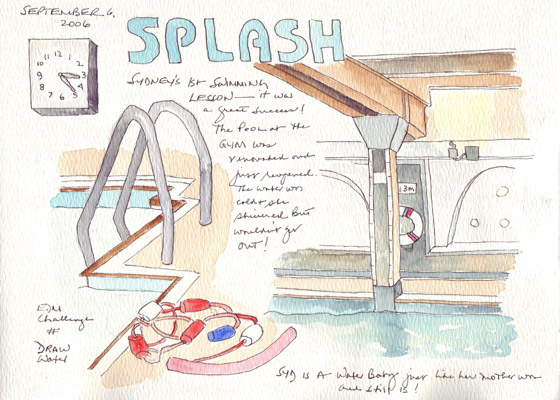 SEPTEMBER 6,
2006
SPLASH
12
11 1
10 2
9 3
8 4
7 6 5
SYDNEY'S 1st SWIMMING
LESSON — it was
a great success!
The Pool at the
GYM was
renovated and
just reopened.
The water was
cold & she
shivered But
wouldn't go
OUT!
1.3m
EDM
Challenge
#F
DRAW
Water
SYD IS A Water Baby just like her mother was
and still is!